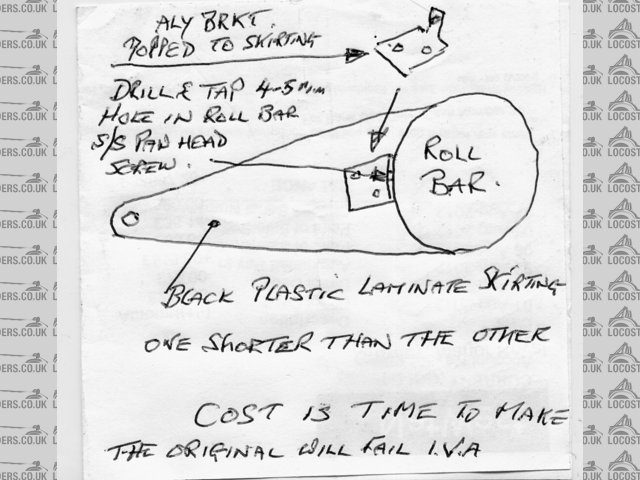 ALY BRKT.
POPPED TO SKIRTING
DRILL & TAP 4-5mm
HOLE IN ROLL BAR
S/S PAN HEAD
SCREW.
ROLL
BAR.
BLACK PLASTIC LAMINATE SKIRTING
ONE SHORTER THAN THE OTHER
COST IS TIME TO MAKE
THE ORIGINAL WILL FAIL I.V.A
LOCOST
DERS.CO.UK